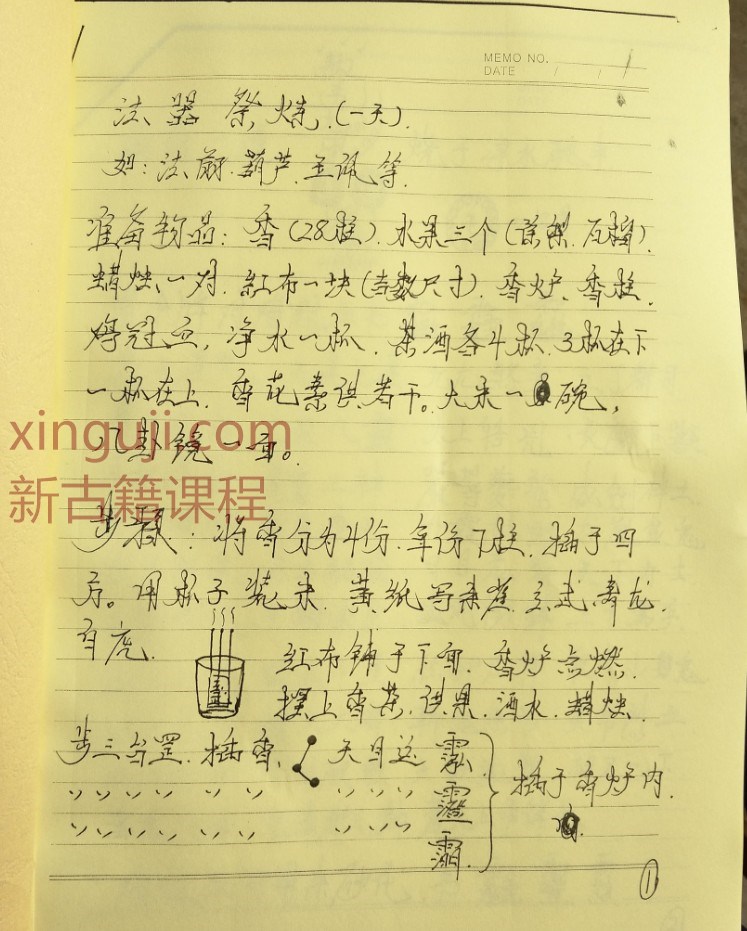 MEMO NO.
DATE / / 1
法器祭炼.(一天).
如:法扇.葫芦.玉佩等.
准备物品:香(28柱).水果三个(苹梨.瓦榴).
蜡烛一对.红布一块(吉数尺寸).香炉、香柱.
鸡冠血,净水一杯.茶酒各4杯.3杯在下
一杯在上.香花素供若干。大米一碗,
八卦镜一面。
xinguji.com
新古籍课程
步骤:将香分为4份.每份7柱.插于四
方。用杯子装米.黄纸写朱雀.玄武.青龙.
白虎.
红布铺于下面.香炉点燃.
摆上香茶.供果.酒水.蜡烛.
步三台罡.插香. 天目送
插于香炉内.
1